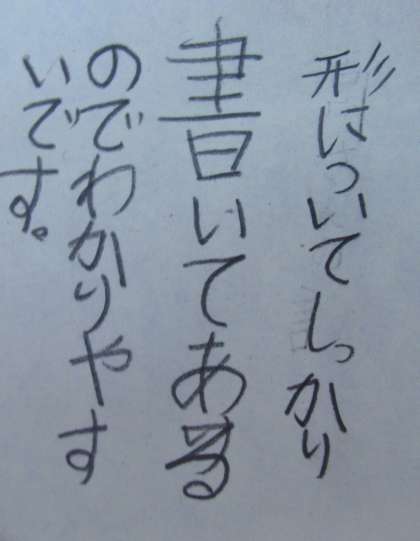 形はついてしっかり
書いてある
のでわかりやす
いです。